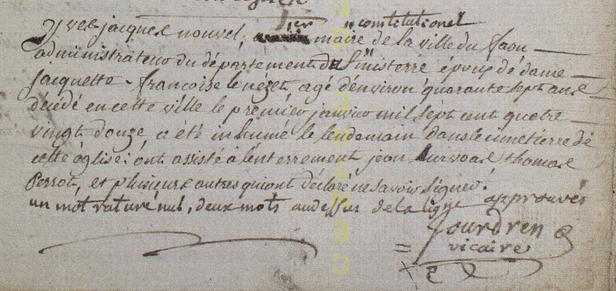 1er constitutionel
Yves jacques nouvel, maire de la ville du faou
administrateur du département du finisterre époux de dame
jacquette françoise le nézet, agé d'environ quarante sept ans
décédé en cette ville le premier janvier mil sept cent quatre
vingt douze a été inhumé le lendamain dans le cimetierre de
cette église: ont assisté à l'enterrement jean thomas
Perrot, et plusieurs autres qui ont déclaré ne savoir signer.
un mot raturé nul, deux mots au dessus de la ligne approuvés
Jourdren
vicaire